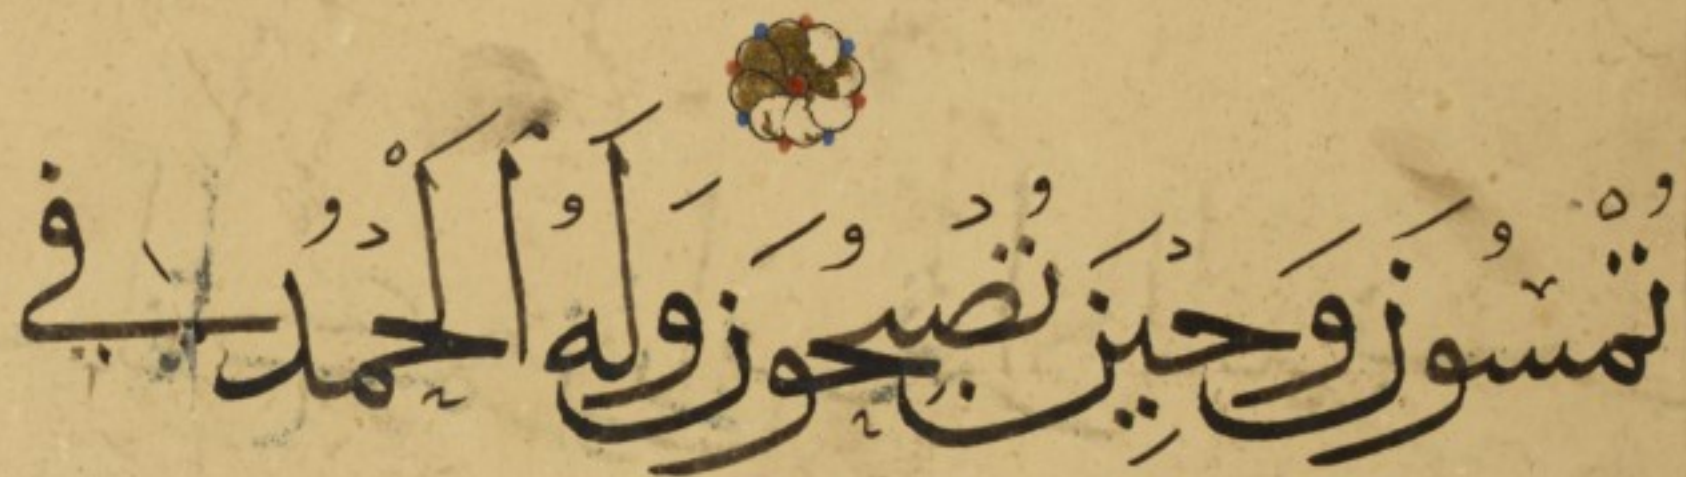 تُمْسُونَ وَحِيْنَ تُصْبِحُونَ وَلَهُ اَلْحَمْدُ فِي